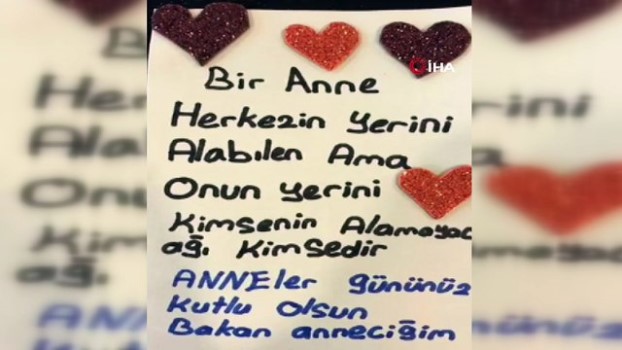 İHA
Bir Anne
Herkezin yerini
Alabilen Ama
Onun yerini
Kimsenin Alamayac
ağı Kimsedir
ANNEler gününüz
Kutlu olsun
Bakan anneciğim